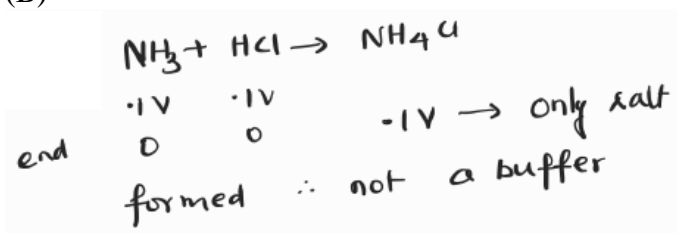 NH3 + HCl → NH4Cl
·1V ·1V
end 0 0 -1V → only salt
formed ∴ not a buffer